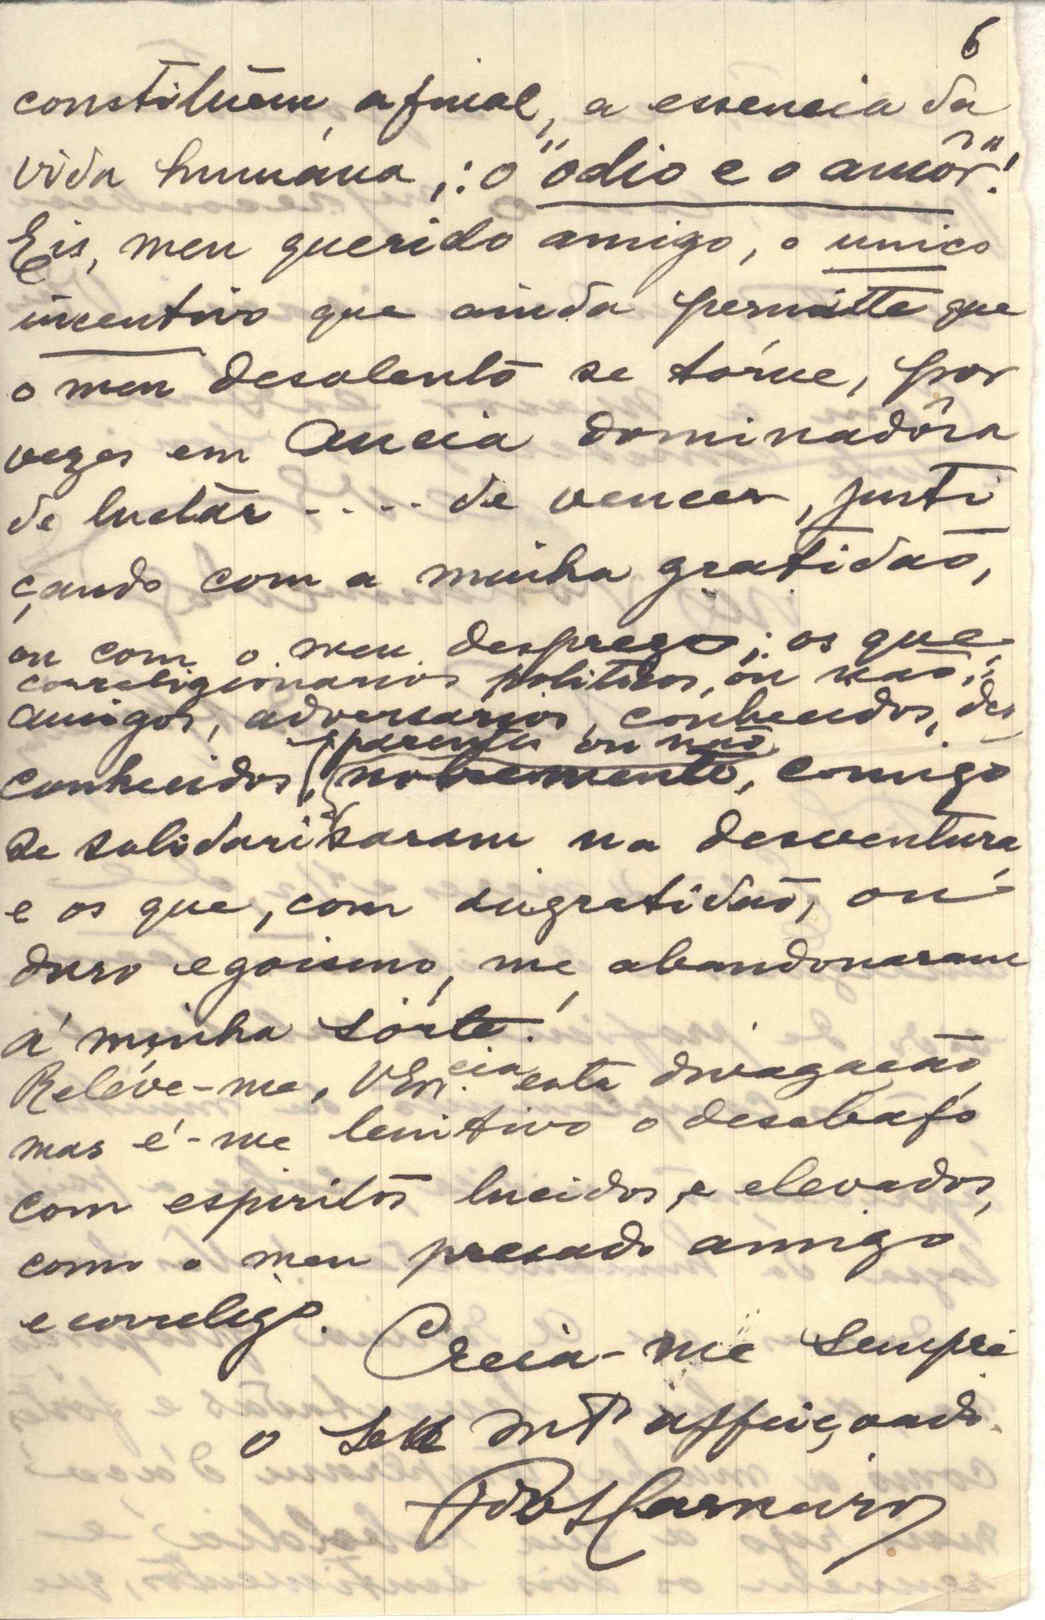 6
constitúem, afinal, a essencia da
vida humana,: o "odio e o amôr"!
Eis, meu querido amigo, o unico
incentivo que ainda permitte que
o meu desalento se tórne, por
vezes em Ancia dominadôra
de luctár .... de vencer, justi
çando com a minha gratidão,
ou com o meu desprezo; os que
correligionarios politicos, ou não,
amigos, adversarios, conhecidos, des
parentes ou não
conhecidos, nobremente, comigo
se solidarisaram na desventura
e os que, com ingratidão, ou
duro egoismo, me abandonaram
á minha sórte!
Reléve-me, VEx.cia esta divagação,
mas é-me lenitivo o desabafo
com espiritos lucidos, e elevados,
como o meu presado amigo
e correligo.
Creia-me sempre
o seu mto affeiçoado.
Carneiro